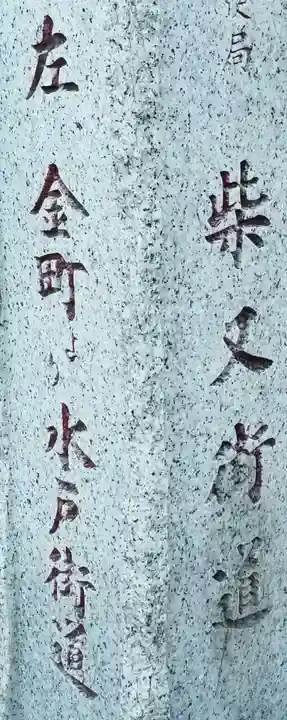 柴又街道
左 金町より水戸街道